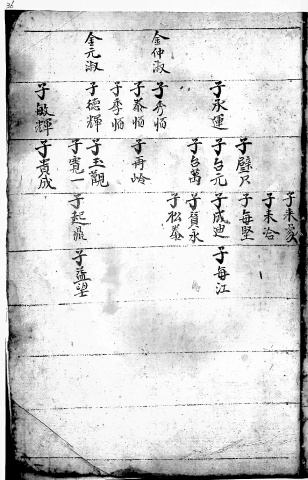 金仲淑
金元淑
子永運
子秀怕
子泰怕
子季怕
子德輝
子敏輝
子璧只
子台元
子台萬
子再岭
子玉觀
子寬一
子責成
子未
子未洽
子每堅
子成迪
子賀永
子松
子起
子每江
子益望